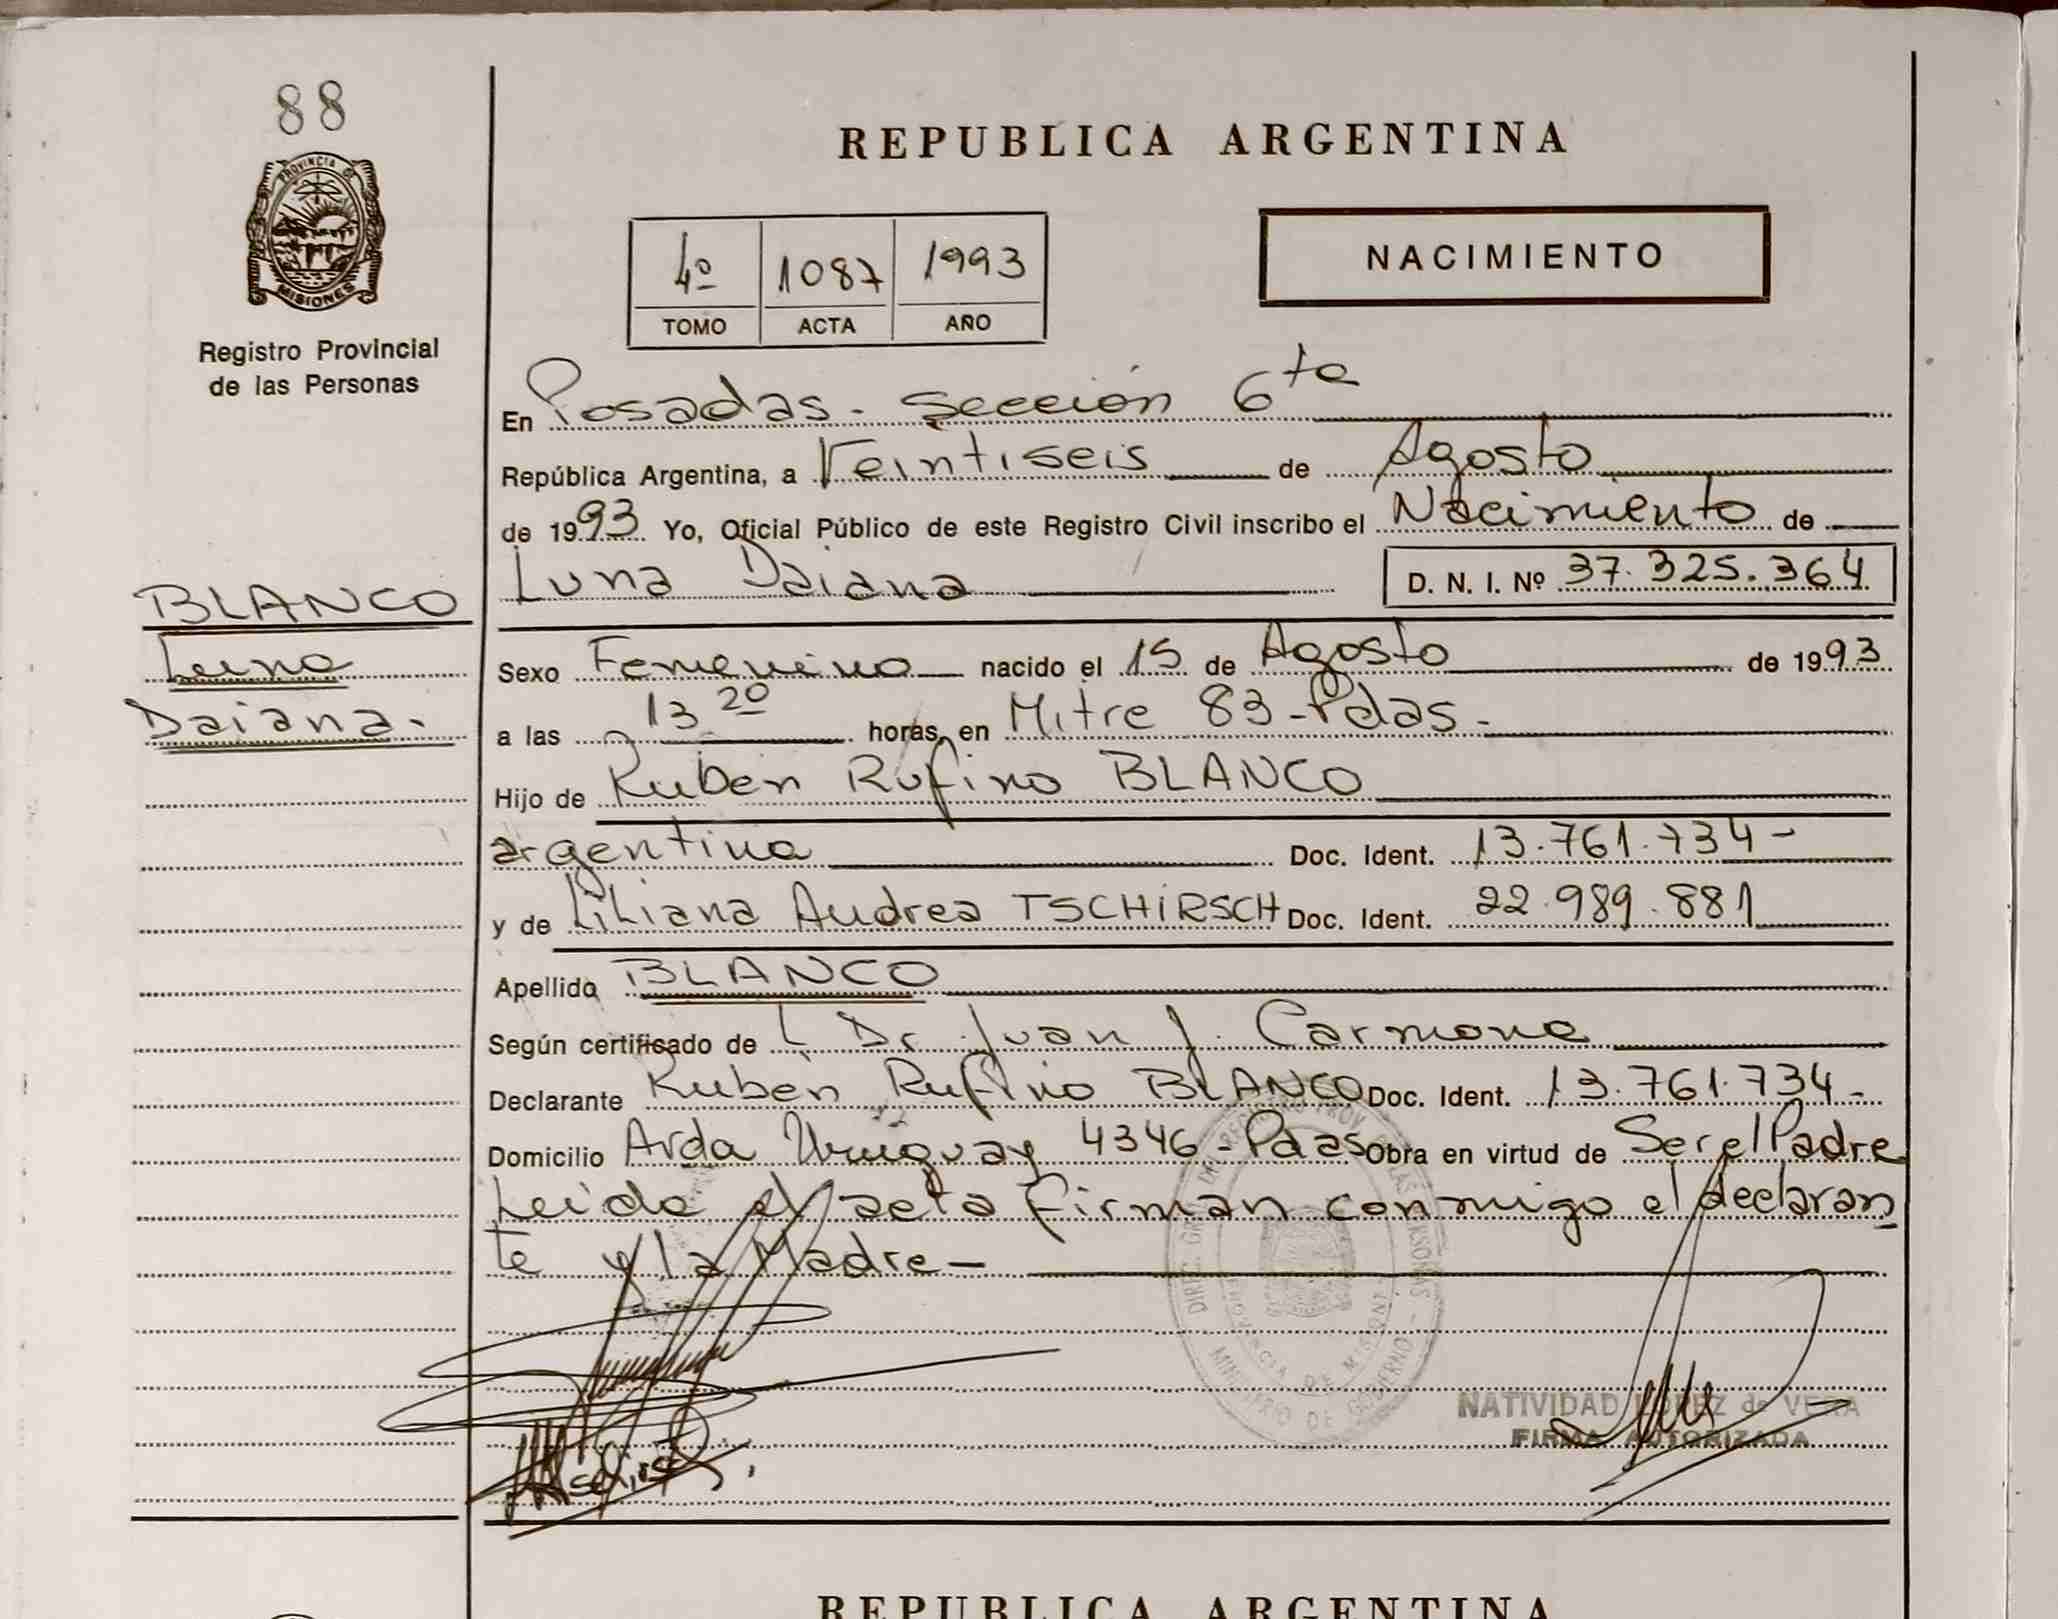 88
PROVINCIA DE
MISIONES
Registro Provincial
de las Personas
REPUBLICA ARGENTINA
4º 1087 1993
TOMO ACTA AÑO
NACIMIENTO
En Posadas - Sección 6ta
República Argentina, a Veintiseis de Agosto
de 1993 Yo, Oficial Público de este Registro Civil inscribo el Nacimiento de
Luna Daiana D. N. I. Nº 37.325.364
BLANCO
Luna
Daiana.-
Sexo Femenino nacido el 15 de Agosto de 1993
a las 13 20 horas, en Mitre 83 - Pdas -
Hijo de Ruben Rufino BLANCO
argentina Doc. Ident. 13.761.734 -
y de Liliana Andrea TSCHIRSCH Doc. Ident. 22.989.881
Apellido BLANCO
Según certificado de Dr. Juan J. Carmona
Declarante Ruben Rufino BLANCO Doc. Ident. 13.761.734 -
Domicilio Avda Uruguay 4346 - Pdas Obra en virtud de Ser el Padre
Leida el acta firman conmigo el declaran
te y la Madre -
MINISTERIO DE GOBIERNO
PROVINCIA DE MISIONES
NATIVIDAD LOPEZ de VERA
FIRMA AUTORIZADA
REPUBLICA ARGENTINA